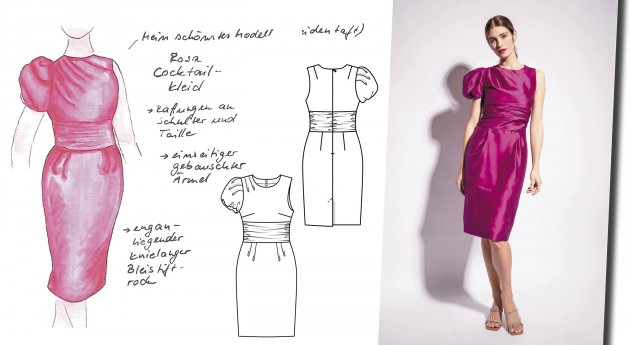 Mein schönstes Modell
(Seidentaft)
Rosa
Cocktail-
kleid
→ Raffungen an
Schulter und
Taille
→ einseitiger
gebauschter
Ärmel
→ engan-
liegender
knielanger
Bleistift-
rock